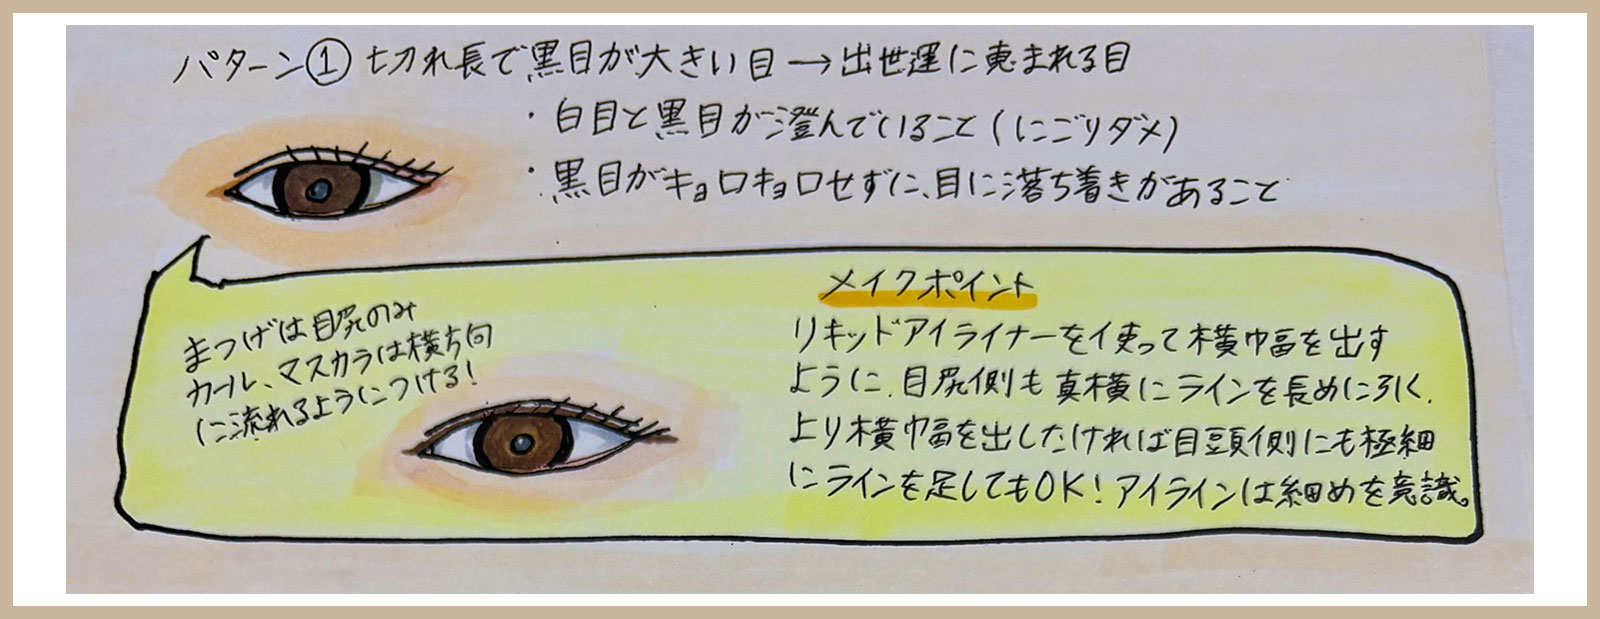 パターン① 切れ長で黒目が大きい目→出世運に恵まれる目
・白目と黒目が澄んでいること(にごりダメ)
・黒目がキョロキョロせずに、目に落ち着きがあること
まつげは目尻のみ
カール、マスカラは横方向
に流れるようにつける!
メイクポイント
リキッドアイライナーを使って横巾畐を出す
ように、目尻側も真横にラインを長めに引く、
より横巾畐を出したければ目頭側にも極細
にラインを足してもOK!アイラインは細めを意識。